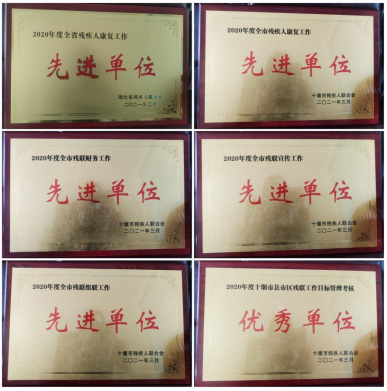 2020年度全省残疾人康复工作
先进单位
湖北省残疾人联合会
二〇二一年二月
2020年度全市残疾人康复工作
先进单位
十堰市残疾人联合会
二〇二一年三月
2020年度全市残联财务工作
先进单位
十堰市残疾人联合会
二〇二一年三月
2020年度全市残联宣传工作
先进单位
十堰市残疾人联合会
二〇二一年三月
2020年度全市残联组联工作
先进单位
十堰市残疾人联合会
二〇二一年三月
2020年度十堰市县市区残联工作目标管理考核
优秀单位
十堰市残疾人联合会
二〇二一年三月